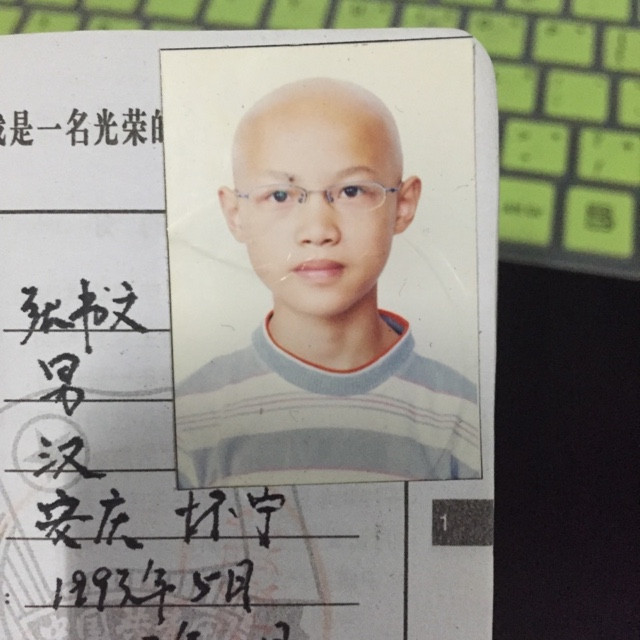 我是一名光荣的
张书文
男
汉
安庆 怀宁
1993年5月
1